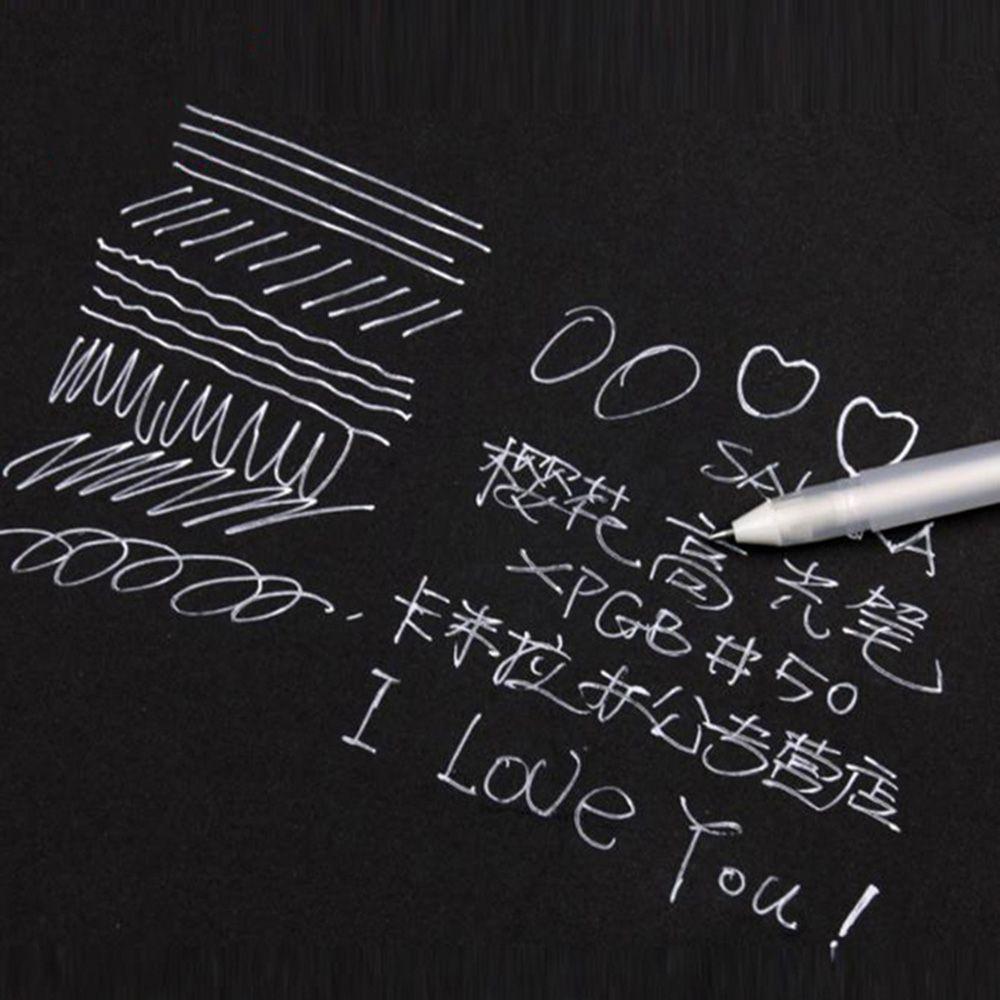 SA A
樱花高光笔
XPGB#50
卡米拉办公专营店
I Love You!